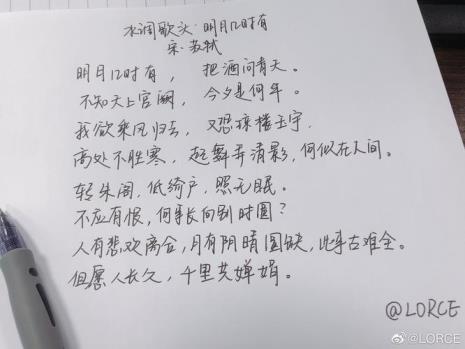 水调歌头·明月几时有
宋·苏轼
明月几时有，把酒问青天。
不知天上宫阙，今夕是何年。
我欲乘风归去，又恐琼楼玉宇，
高处不胜寒，起舞弄清影，何似在人间。
转朱阁，低绮户，照无眠。
不应有恨，何事长向别时圆？
人有悲欢离合，月有阴晴圆缺，此事古难全。
但愿人长久，千里共婵娟。
@LORCE
@LORCE